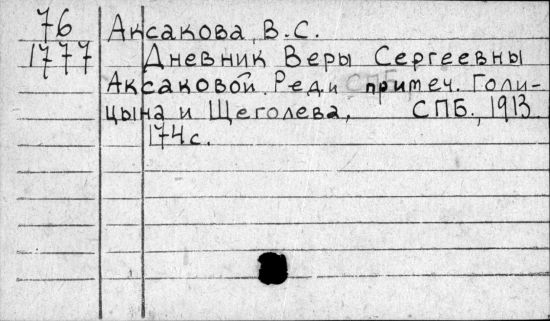 76 Аксакова В.С.
1777 Дневник Веры Сергеевны
Аксаковой. Ред и примеч. Голи-
цына и Щеголева, СПБ., 1913.
174 с.